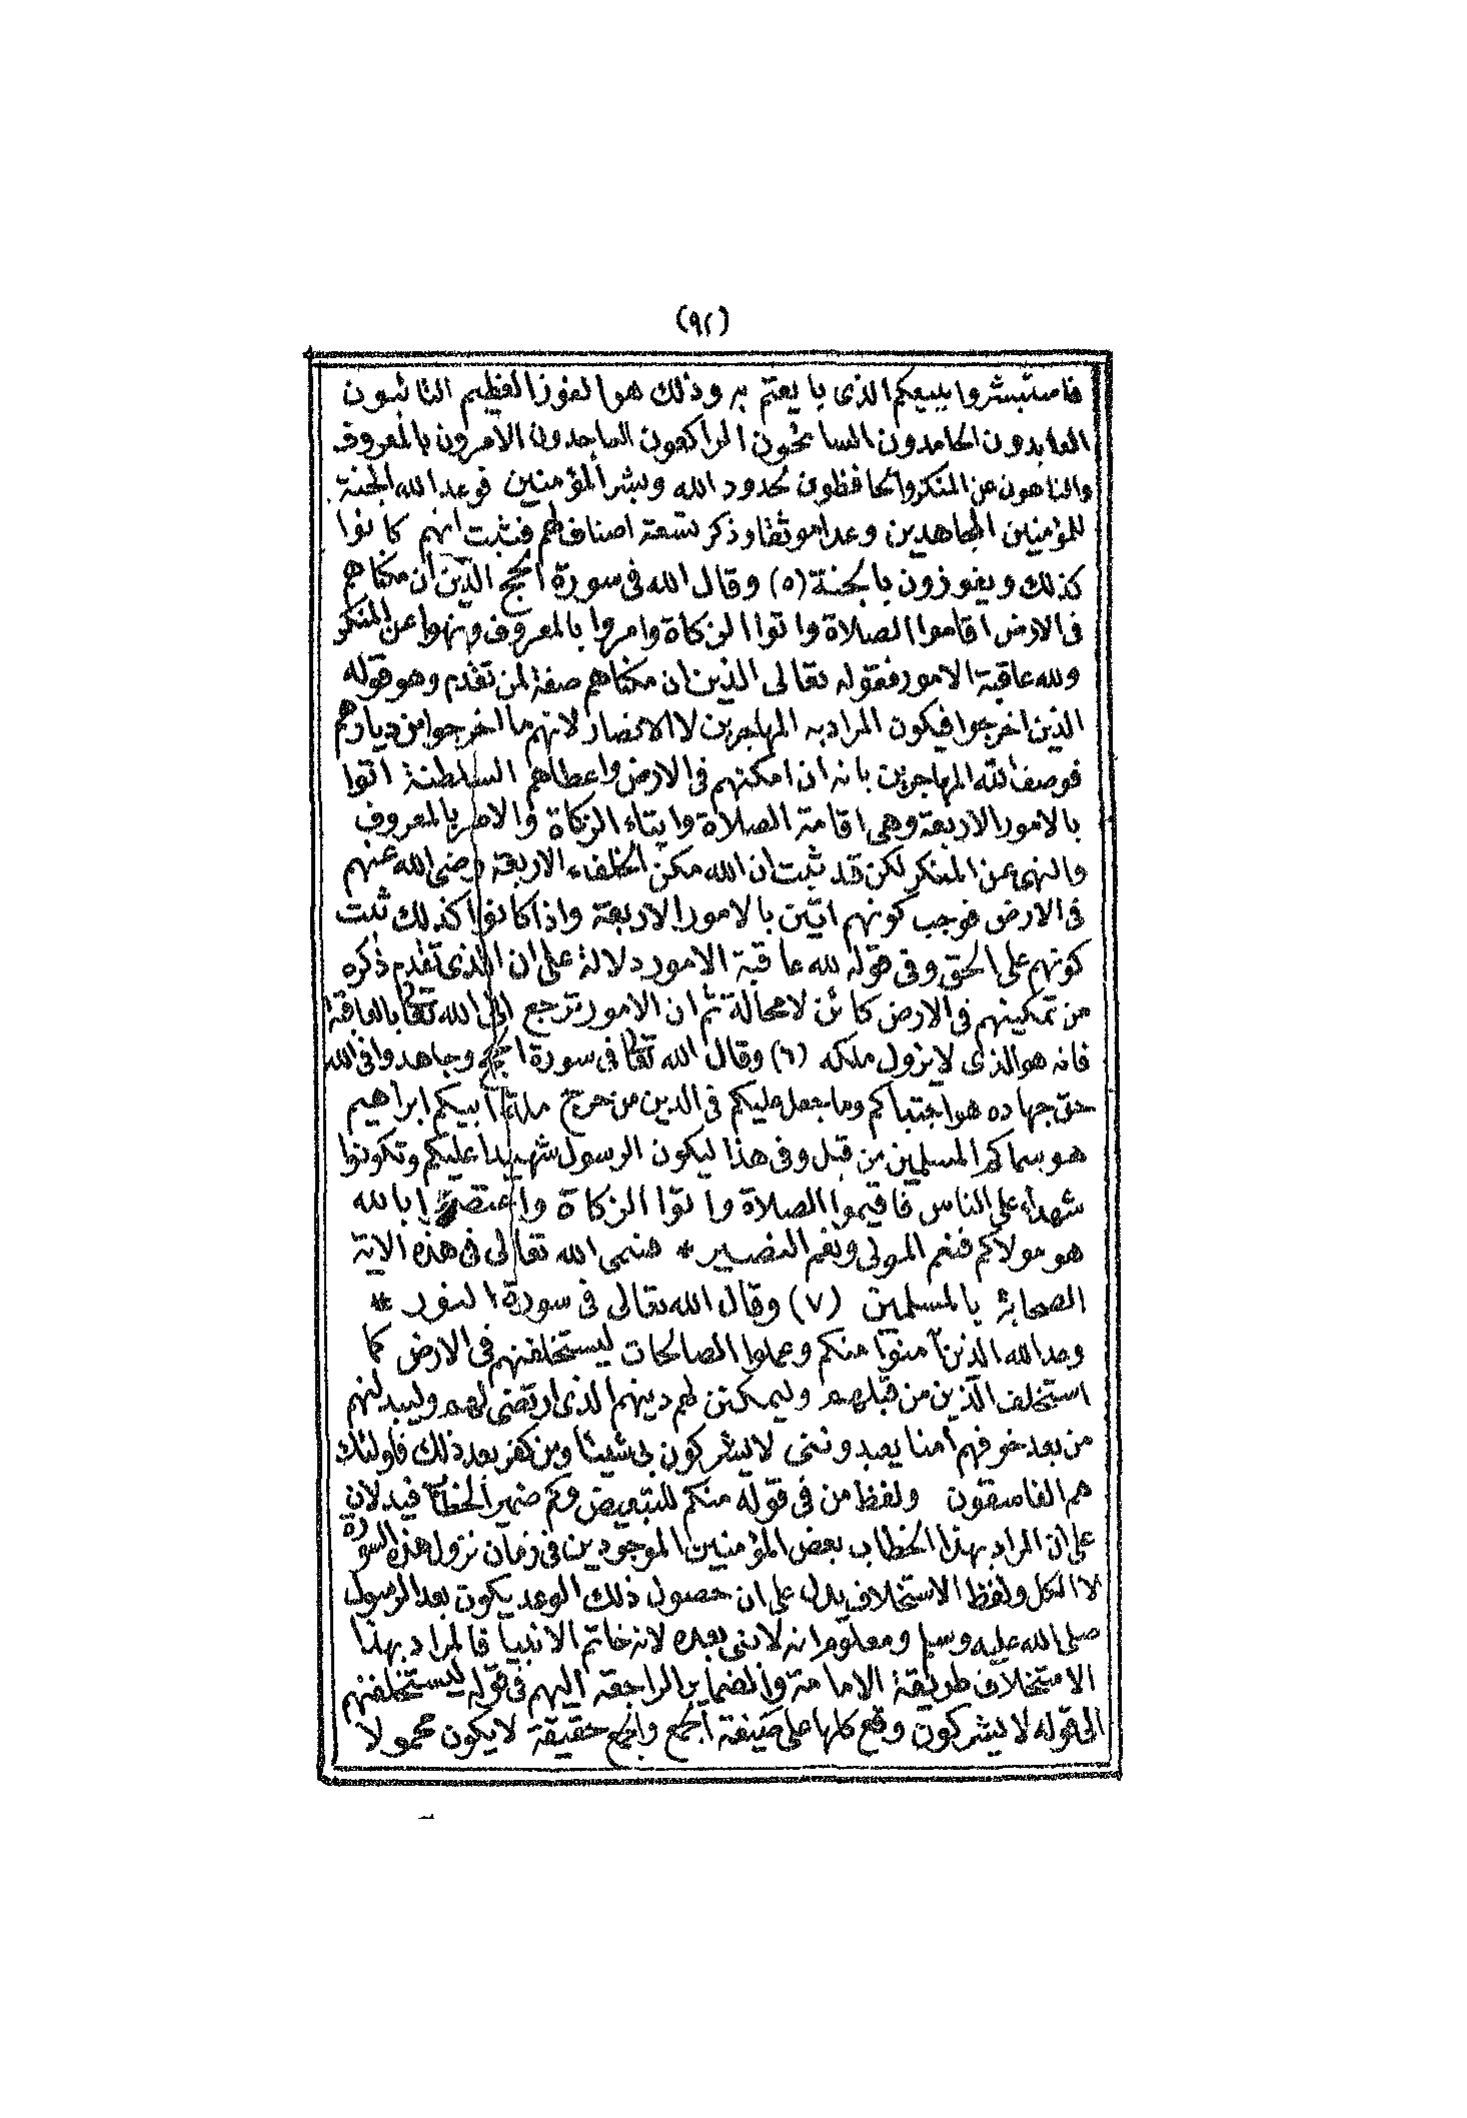 (٩٢)
فاستبشروا ببيعكم الذى بايعتم به وذلك هو الفوز العظيم التائبون
العابدون الحامدون السائحون الراكعون الساجدون الآمرون بالمعروف
والناهون عن المنكر والحافظون لحدود الله وبشر المؤمنين فوعد الله الجنة
للمؤمنين المجاهدين وعدا موثقا وذكر تسعة اصناف لهم فثبت انهم كانوا
كذلك ويفوزون بالجنة (٥) وقال الله فى سورة الحج الذين ان مكناهم
فى الارض اقاموا الصلاة واتوا الزكاة وامروا بالمعروف ونهوا عن المنكر
ولله عاقبة الامور فقوله تعالى الذين ان مكناهم صفة لمن تقدم وهو قوله
الذين اخرجوا فيكون المراد به المهاجرين لا الانصار لانهم ما اخرجوا من ديارهم
فوصف الله المهاجرين بانه ان امكنهم فى الارض واعطاهم السلطنة اتوا
بالامور الاربعة وهى اقامة الصلاة وايتاء الزكاة والامر بالمعروف
والنهى عن المنكر لكن قد ثبت ان الله مكن الخلفاء الاربعة رضى الله عنهم
فى الارض فوجب كونهم اتين بالامور الاربعة واذا كانوا كذلك ثبت
كونهم على الحق وفى قوله لله عاقبة الامور دلالة على ان الذى تقدم ذكره
من تمكينهم فى الارض كائن لا محالة ثم ان الامور ترجع الى الله تعالى بالعاقبة
فانه هو الذى لا يزول ملكه (٦) وقال الله تعالى فى سورة الحج وجاهدوا فى الله
حق جهاده هو اجتباكم وما جعل عليكم فى الدين من حرج ملة أبيكم ابراهيم
هو سماكم المسلمين من قبل وفى هذا ليكون الرسول شهيدا عليكم وتكونوا
شهداء على الناس فاقيموا الصلاة واتوا الزكاة واعتصموا بالله
هو مولاكم فنعم المولى ونعم النصير * فسمى الله تعالى فى هذه الاية
الصحابة بالمسلمين (٧) وقال الله تعالى فى سورة النور *
وعد الله الذين آمنوا منكم وعملوا الصالحات ليستخلفنهم فى الارض كما
استخلف الذين من قبلهم وليمكنن لهم دينهم الذى ارتضى لهم وليبدلنهم
من بعد خوفهم أمنا يعبدوننى لا يشركون بى شيئا ومن كفر بعد ذلك فاولئك
هم الفاسقون ولفظ من فى قوله منكم للتبعيض وكم ضمير الخطاب فيدلان
على ان المراد بهذا الخطاب بعض المؤمنين الموجودين فى زمان نزول هذه السورة
لا الكل ولفظ الاستخلاف يدل على ان حصول ذلك الوعد يكون بعد الرسول
صلى الله عليه وسلم ومعلوم انه لا نبى بعده لانه خاتم الانبيا فالمراد بهذا
الاستخلاف طريقة الامامة والضماير الراجعة اليهم فى قوله ليستخلفنهم
الى قوله لا يشركون وقع كلها على صيغة الجمع والجمع حقيقة لا يكون محمولا